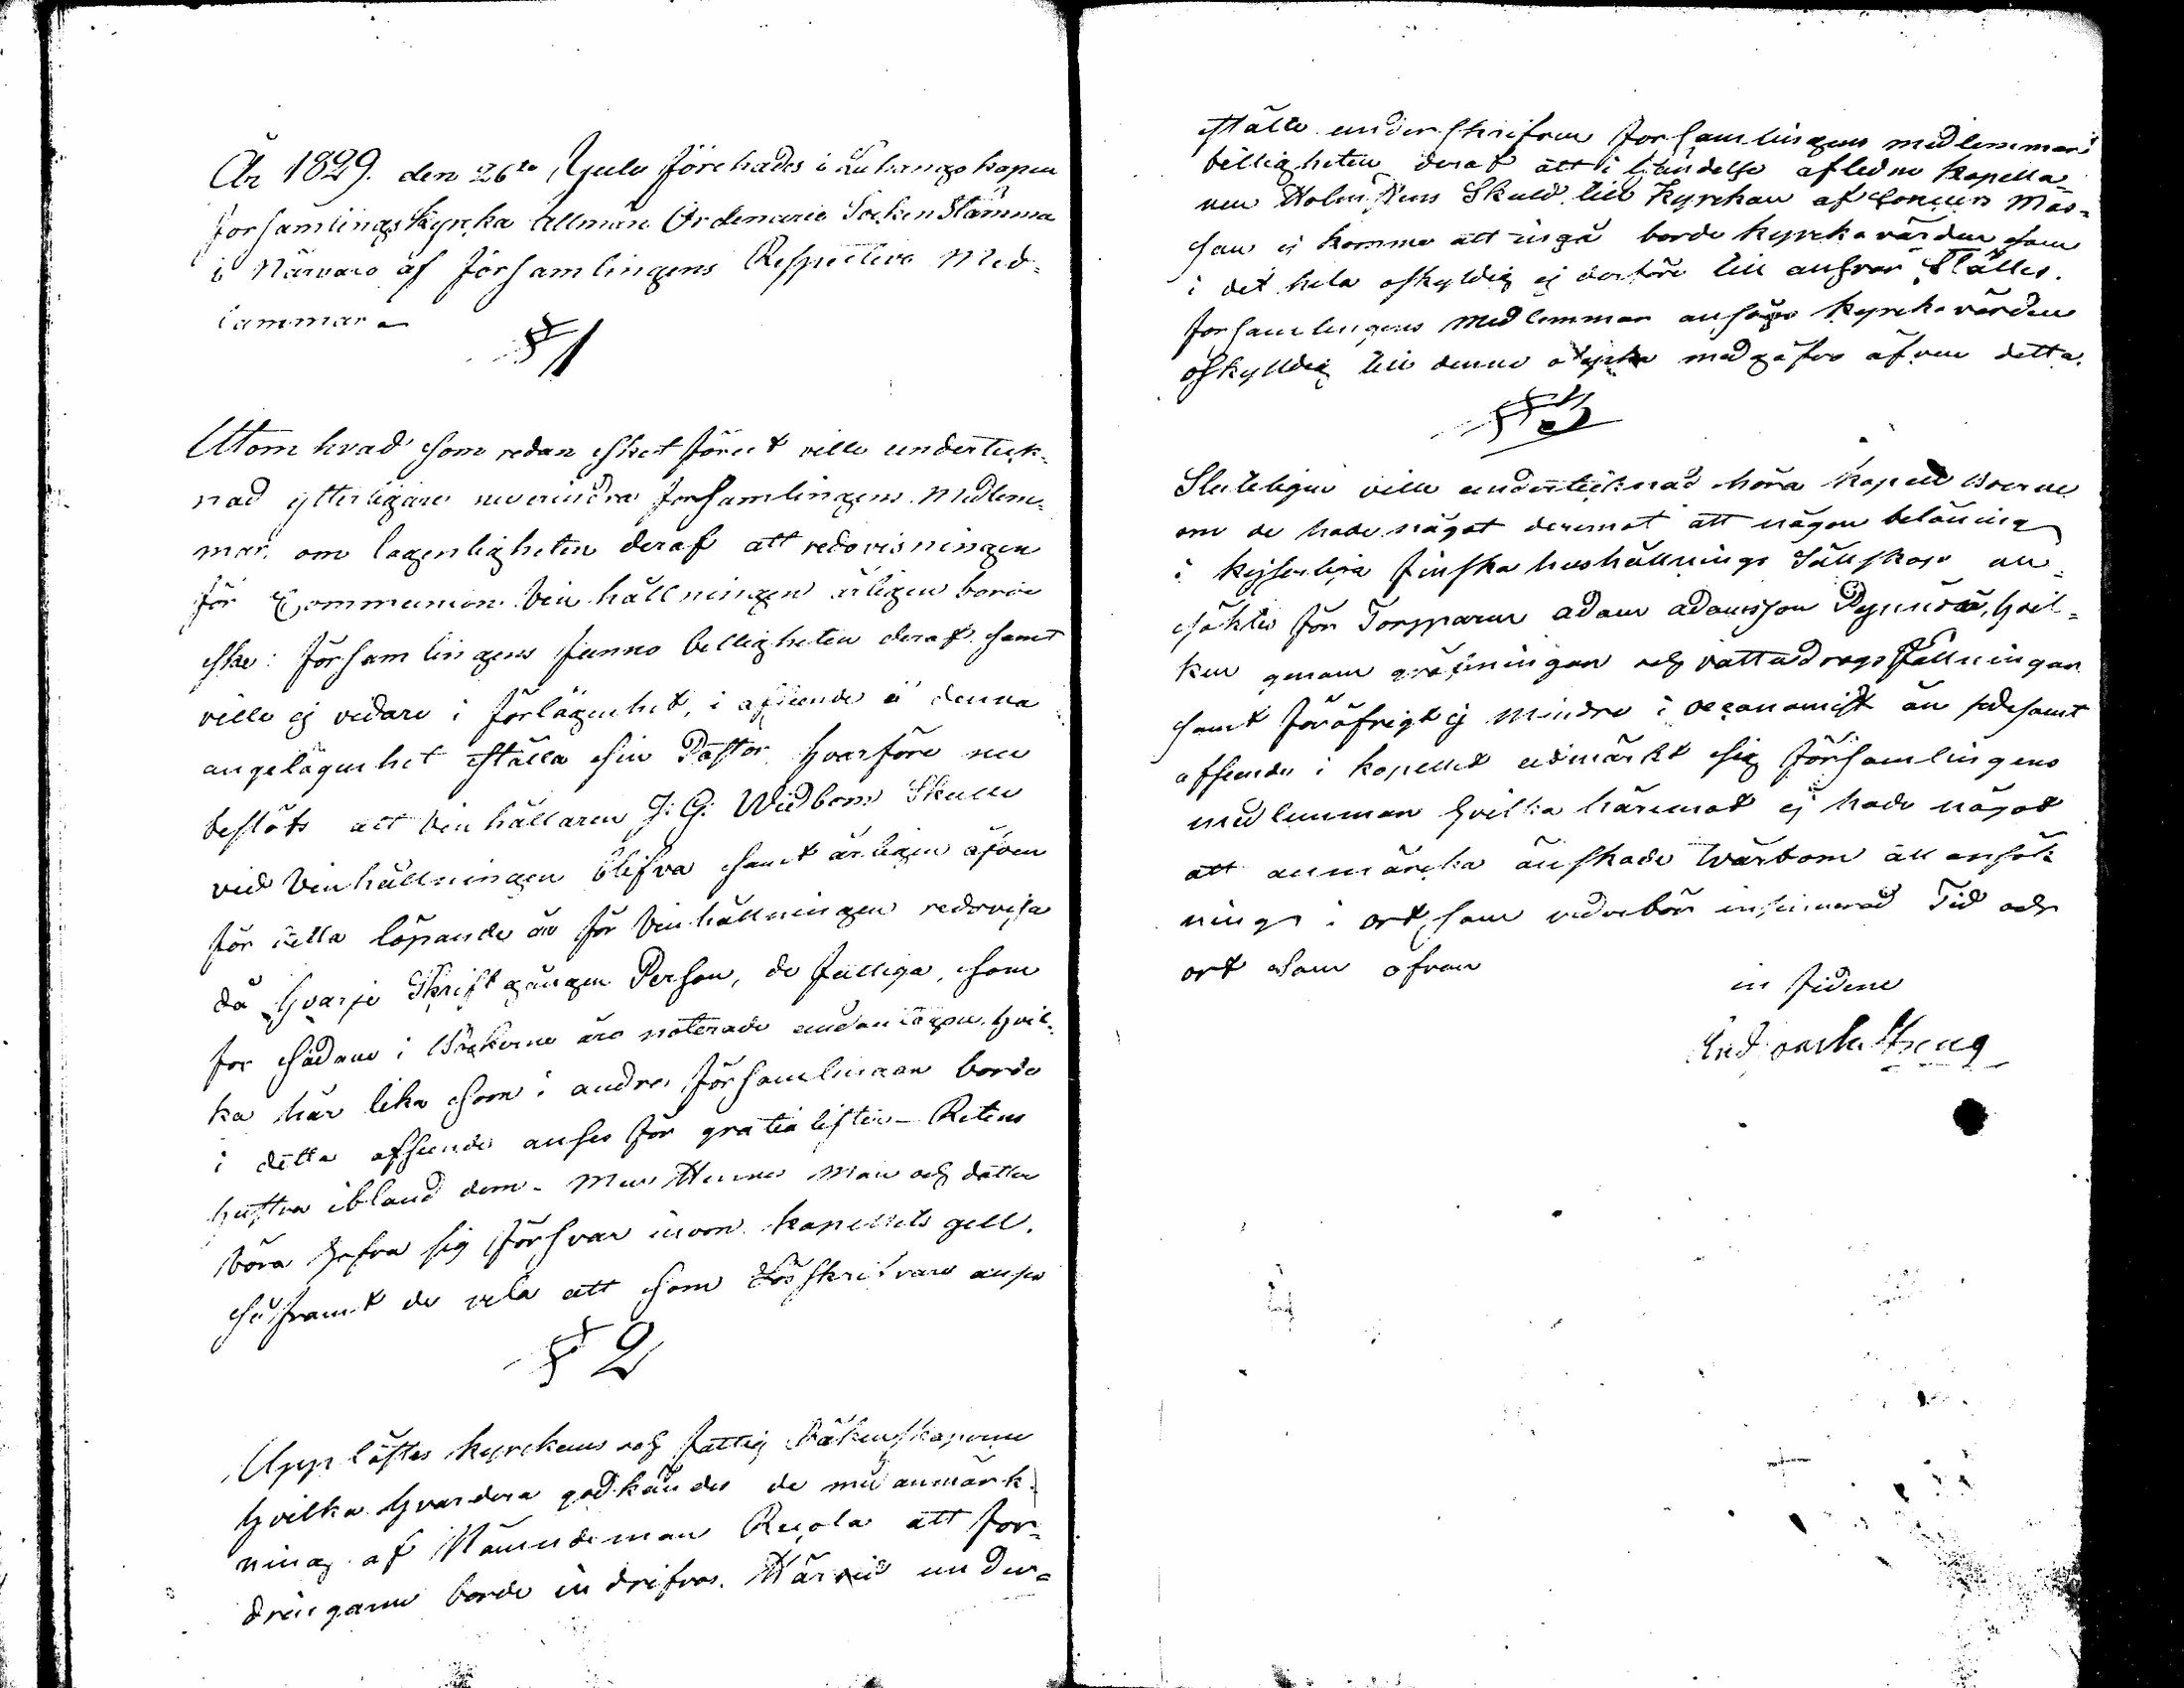 År 1829. den 26te Julii förehades i Luhango kapell
församlings kyrcka Allmän Ordenarie Socken Stämma
i Närvaro af församlingens Respective Med=
lammar
§ 1
Utom hvad som redan sket förut ville underteck=
nad ytterligare nu erindra församlingens Medlem=
mar, om lagenligheten deraf att redovisningen
för Communion Vin hållningen årligen borde
ske: församlingens funno billigheten deraf samt
ville ej vidare i förlägenhet, i afseende å denna
angelägenhet ställa sin Pastor hvarföre nu
beslöts att Vin hållaren J: G: Widbom Skulle
vid Vinhållningen blifva samt årligen äfven
för detta löpande år för Vinhållningen redovisa
då hvarje Skriftgången Person, de fattiga, som
för sådane i Böckerne äro noterade undantagne. hvil=
ka här lika som i andra församlingar borde
i detta afseende anses för gratialister Ritens
hustru ibland dem. Men Hennes Man och dotter
böra skafva sig försvar inom kapellets gell.
såframt de vela att som Lösskrifvare anses
§ 2
Upp lästes kyrckans och fattig Räkenskaperne
hvilka hvardera godkändes de med anmärk
ning af Nämndeman Ruola att for=
dringarne borde indrifvas. Härvid under=
ställte underskrifven församlingens medlemmar
billigheten deraf att i händelse afledne kapella=
nen Holmstens Skuld till Kyrckan af Concurs Mas=
san ej komme att ingå borde kyrckovärden som
i det hela oskyldig ej derföre till ansvar Ställes.
församlingens medlemmar ansågo kyrckovärden
oskylldig till denna olycka medgåfvo äfven detta.
§ 3
Sluteligen ville undertecknad höra kapellboerne
om de hade något deremot att någon belöning
i kejserliga finska hushållnings Sällskap an=
söktes för Torpparen Adam Adamsson Pynnöä, hvil=
ken genom gräfningar och vattudrags fällningar
samt föröfrigt ej mindre i oeconomist än sedesamt
afseende i kapellet utmärkt sig församlingens
medlemmar hvilka häremot ej hade något
att anmärcka önskade tvärtom att ansök
nings i ort, som vederbör insinuerad Tid och
ort som ofvan
in fidem
And